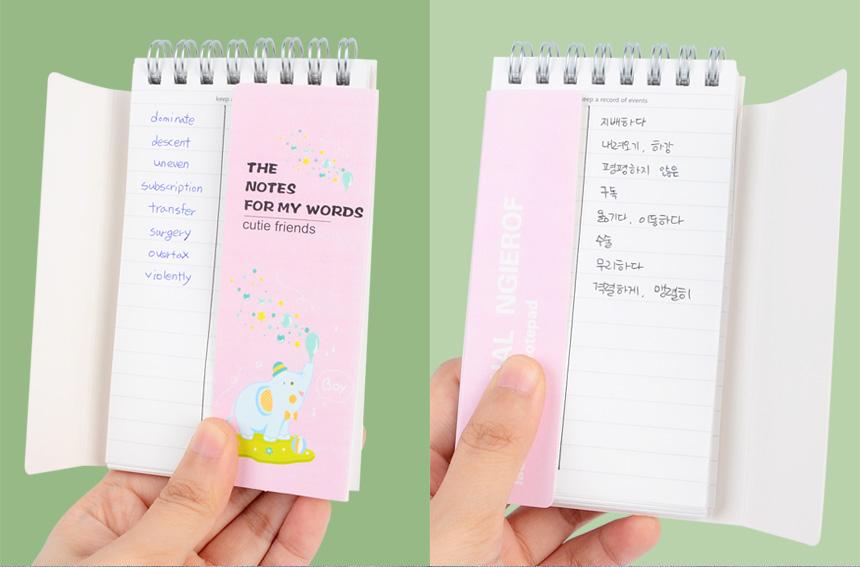 keep a
dominate
descent
uneven
subscription
transfer
surgery
overtax
violently
THE
NOTES
FOR MY WORDS
cutie friends
Boy
keep a record of events
지배하다
내려오기, 하강
평평하지 않은
구독
옮기다, 이동하다
수술
무리하다
격렬하게, 맹렬히
NGIEROF
notepad